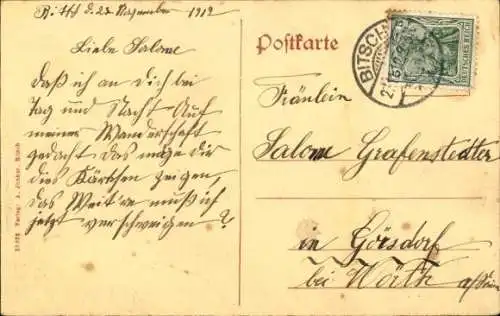 Bitsch d. 25 November 1912
Liebe Salome
daß ich an Dich bei
Tag und Nacht Auf
meiner Wanderschaft
gedacht Das möge dir
dies Kärtchen zeigen,
das Weit're muß ich
jetzt verschweigen ?
Postkarte
BITSCH
DEUTSCHES REICH
Fräulein
Salome Grafenstedter
in Görsdorf
bei Wörth a/Sauer
Verlag